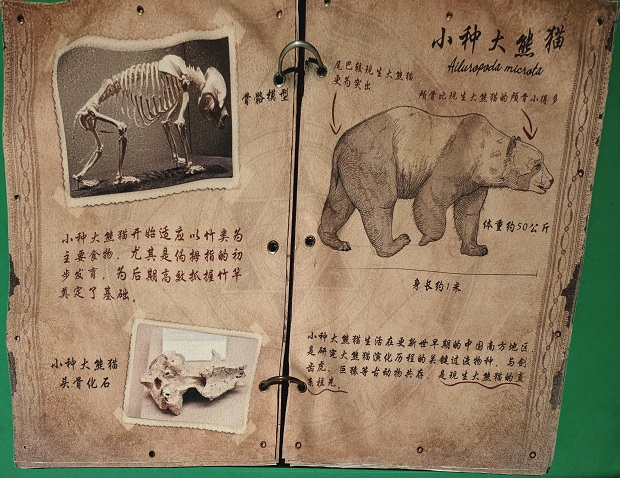 骨骼模型
小种大熊猫开始适应以竹类为
主要食物，尤其是伪拇指的初
步发育，为后期高效抓握竹竿
奠定了基础。
小种大熊猫
头骨化石
小种大熊猫
Ailuropoda microta
尾巴较现生大熊猫
更为突出
颅骨比现生大熊猫的颅骨小得多
体重约50公斤
身长约1米
小种大熊猫生活在更新世早期的中国南方地区
是研究大熊猫演化历程的关键过渡物种，与剑
齿虎、巨猿等古动物共存，是现生大熊猫的直
系祖先。